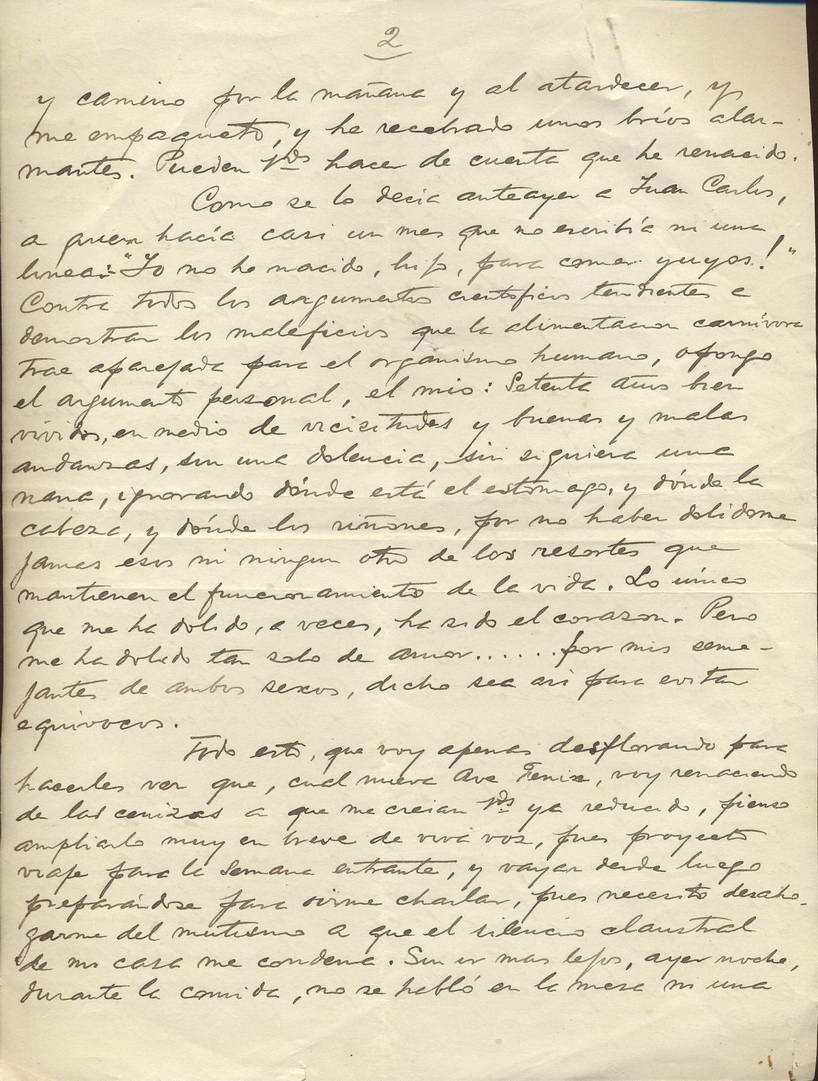 2
y camino por la mañana y al atardecer, y
me empaqueto, y he recobrado unos bríos alar-
mantes. Pueden Vds hacer de cuenta que he renacido.
Como se lo decia anteayer a Juan Carlos,
a quien hacía casi un mes que no escribía ni una
linea: "Yo no he nacido, hijo, para comer yuyos!"
Contra todos los argumentos cientoficos tendientes a
demostrar los maleficios que la alimentacion carnívora
trae aparejada para el organismo humano, opongo
el argumento personal, el mio: Setenta años bien
vividos, en medio de vicisitudes y buenas y malas
andanzas, sin una dolencia, sin siquiera una
nana, ignorando dónde está el estómago, y dónde la
cabeza, y dónde los riñones, por no haber dolidome
jamas esos ni ningun otro de los resortes que
mantienen el funcionamiento de la vida. Lo único
que me ha dolido, a veces, ha sido el corazon. Pero
me ha dolido tan solo de amor......por mis seme-
jantes de ambos sexos, dicho sea asi para evitar
equivocos.
Todo esto, que voy apenas desflorando para
hacerles ver que, cual nueva Ave Fenix, voy renaciendo
de las cenizas a que me creian Vds ya reducido, pienso
ampliarlo muy en breve de viva voz, pues proyecto
viaje para la semana entrante, y vayan desde luego
preparándose para oirme charlar, pues necesito desaho-
garme del mutismo a que el silencio claustral
de mi casa me condena. Sin ir mas lejos, ayer noche,
durante la comida, no se habló en la mesa ni una